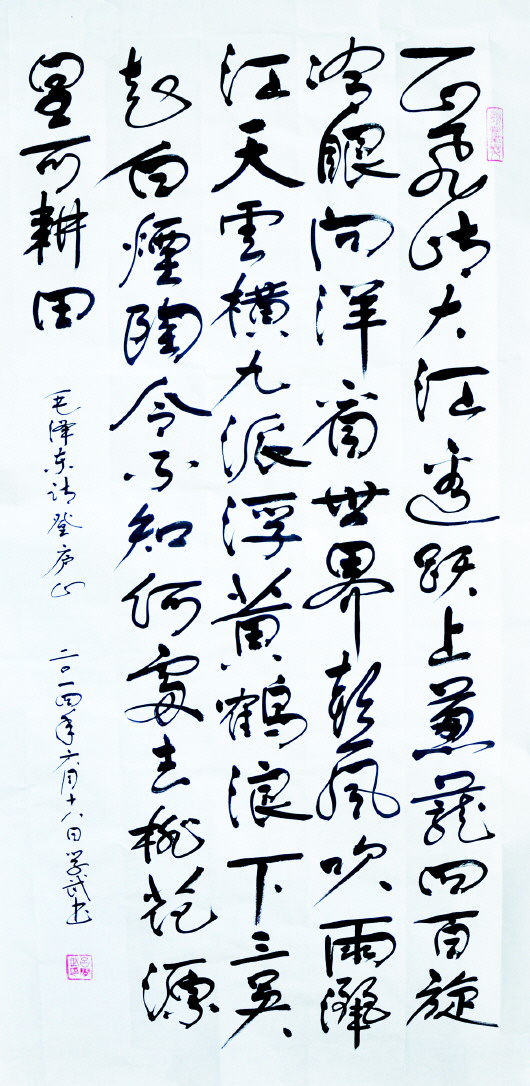 一山飛峙大江邊跃上蔥蘢四百旋
冷眼向洋看世界熱風吹雨灑
江天雲橫九派浮黄鶴浪下三吴
起白煙陶令不知何處去桃花源
里可耕田
毛泽东诗登庐山 二〇一四年六月十八日学武书